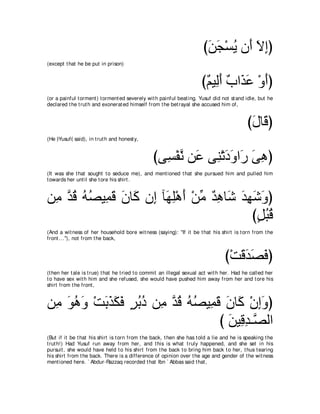 (إِلاَ أَن يُسْجَنَ)
(except that he be put in prison)
(أَوْ عَذَابٌ أَلِيمٌ)
(or a painful torment) tormented severely with painful beating. Yusuf did not stand idle, but he declared the truth and exonerated himself from the betrayal she accused him of,
(قَالَ)
(He [Yusuf] said), in truth and honesty,
(هِىَ رَاوَدَتْنِى عَن نَّفْسِى)
(It was she that sought to seduce me), and mentioned that she pursued him and pulled him towards her until she tore his shirt.
(وَشَهِدَ شَاهِدٌ مِّنْ أَهْلِهَآ إِن كَانَ قَمِيصُهُ قُدَّ مِن قُبُلٍ)
(And a witness of her household bore witness (saying): "If it be that his shirt is torn from the front..."), not from the back,
(فَصَدَقَتْ)
(then her tale is true) that he tried to commit an illegal sexual act with her. Had he called her to have sex with him and she refused, she would have pushed him away from her and tore his shirt from the front,
(وَإِنْ كَانَ قَمِيصُهُ قُدَّ مِن دُبُرٍ فَكَذَبَتْ وَهُوَ مِن الصَّـدِقِينَ )
(But if it be that his shirt is torn from the back, then she has told a lie and he is speaking the truth!) Had Yusuf run away from her, and this is what truly happened, and she set in his pursuit, she would have held to his shirt from the back to bring him back to her, thus tearing his shirt from the back. There is a difference of opinion over the age and gender of the witness mentioned here. `Abdur-Razzaq recorded that Ibn `Abbas said that,